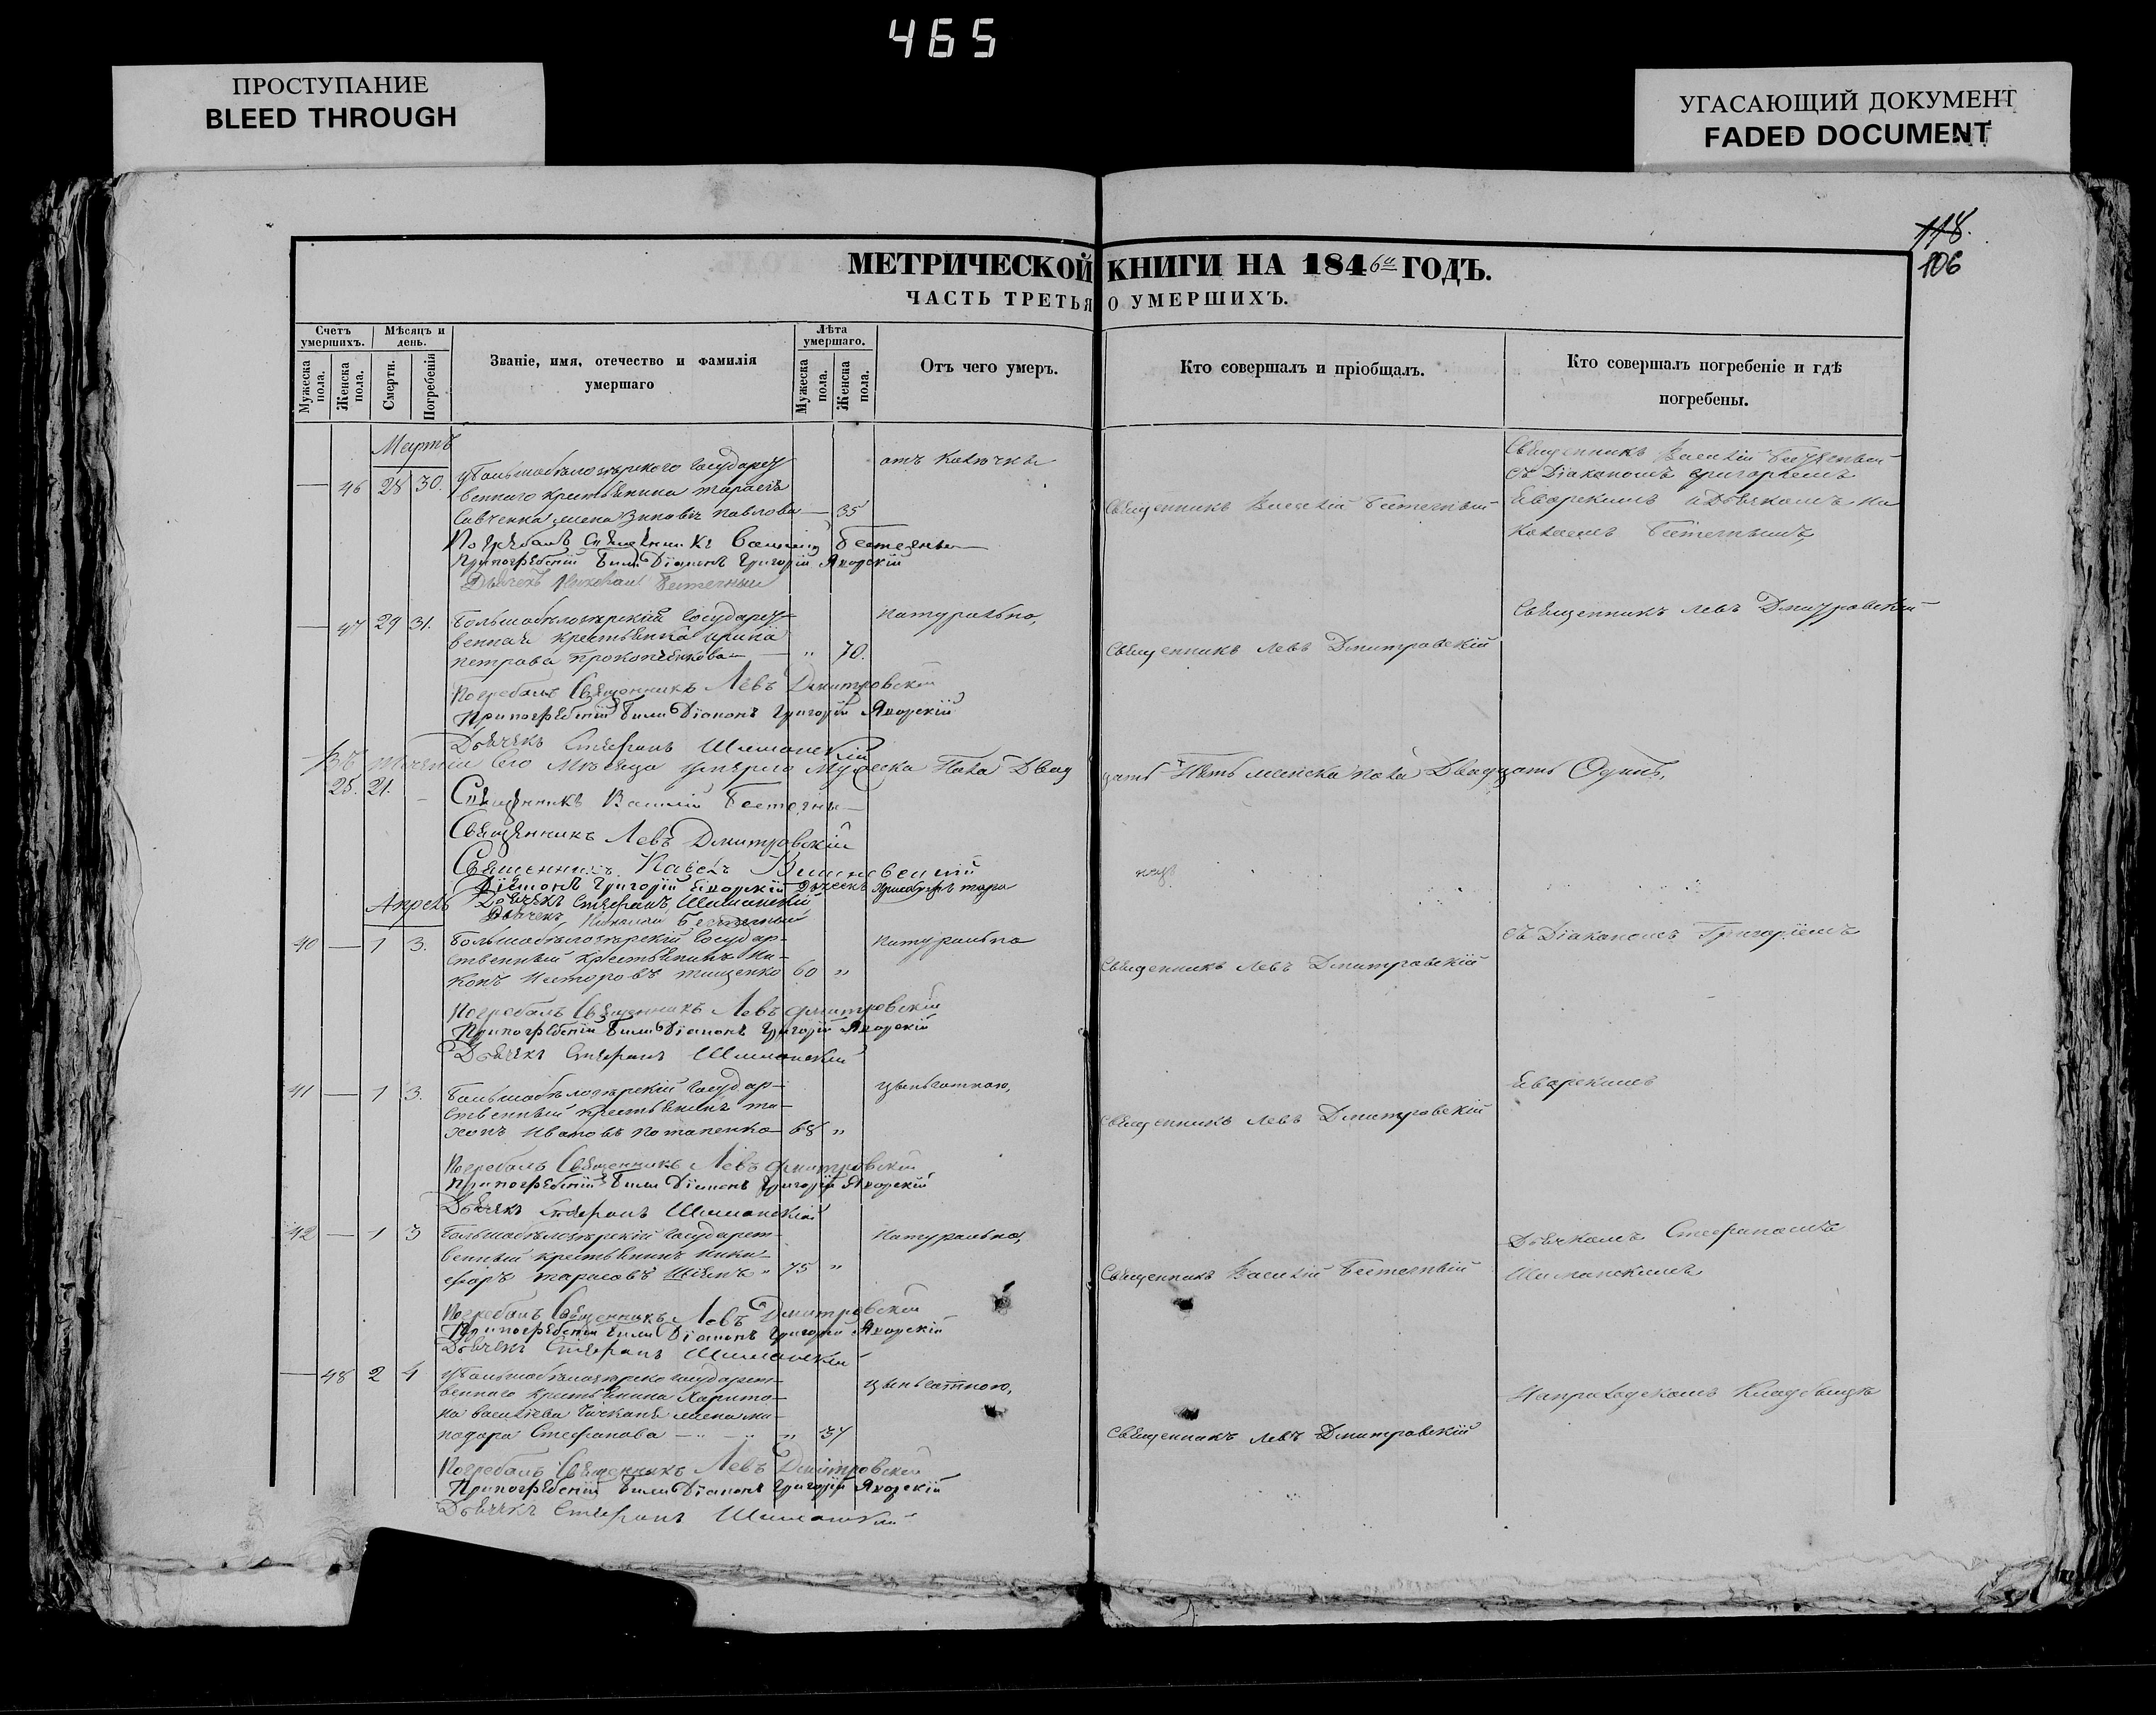 465
ПРОСТУПАНИЕ
BLEED THROUGH
УГАСАЮЩИЙ ДОКУМЕНТ
FADED DOCUMENT
118.
106
МЕТРИЧЕСКОЙ КНИГИ НА 1846 ГОДЪ.
ЧАСТЬ ТРЕТЬЯ О УМЕРШИХЪ.
Счетъ умершихъ.
Мужеска пола.
Женска пола.
Мѣсяцъ и день.
Смерти.
Погребенія
Званіе, имя, отечество и фамилія умершаго
Лѣта умершаго.
Мужеска пола.
Женска пола.
Отъ чего умеръ.
Кто совершалъ и пріобщалъ.
Кто совершалъ погребеніе и гдѣ погребены.
Мартъ
— 46 28 30.
венного крестьянина
Савченка жена Павлова — 35
отъ колючки
Священникъ Василій Бетечный
Священникъ Василій
съ Діакономъ Григоріемъ
Яворскимъ и Дьячкомъ Ни
колаемъ
Погребалъ Священникъ Василій
При погребеніи были Діаконъ Григорій Яворскій
Дьячекъ Николай
— 47 29 31.
Большобѣлозѣрскій Государст
венная крестьянка Ирина
Петрова Прокопенкова — " 70.
натурально,
Священникъ Левъ Дмитровскій
Священникъ Левъ Дмитровскій
Погребалъ Священникъ Левъ Дмитровскій
При погребеніи были Діаконъ Григорій Яворскій
Дьячекъ Стефанъ Шиманскій
Въ теченіи сего мѣсяца умерло Мужеска Пола Двадцать Пять женска пола Двадцать Одинъ,
25. 21.
Священникъ Василій
Священникъ Левъ Дмитровскій
Священникъ Павелъ
Діаконъ Григорій Яворскій Дьячекъ
Дьячекъ Стефанъ Шиманскій
Дьячекъ Николай
Апрель
40 — 1 3.
Большобѣлозѣрскій Государ-
ственный крестьянинъ Ни-
конъ Несторовъ Тищенко 60 "
натурально
Священникъ Левъ Дмитровскій
съ Діакономъ Григоріемъ
Погребалъ Священникъ Левъ Дмитровскій
При погребеніи были Діаконъ Григорій Яворскій
Дьячекъ Стефанъ Шиманскій
41 — 1 3.
Большобѣлозѣрскій Государ-
ственный крестьянинъ Ти-
хонъ Ивановъ Потапенко 68 "
цынготною,
Священникъ Левъ Дмитровскій
Яворскимъ
Погребалъ Священникъ Левъ Дмитровскій
При погребеніи были Діаконъ Григорій Яворскій
Дьячекъ Стефанъ Шиманскій
42 — 1 3
Большобѣлозѣрскій Государст-
венный крестьянинъ Ники-
форъ Тарасовъ " 75 "
Натурально,
Священникъ Василій Бетечный
Дьячкомъ Стефаномъ
Шиманскимъ
Погребалъ Священникъ Левъ Дмитровскій
При погребеніи были Діаконъ Григорій Яворскій
Дьячекъ Стефанъ Шиманскій
— 48 2 4
венного крестьянина Харито-
на Васильева жена
Стефанова — " — " 37
цынготною,
Священникъ Левъ Дмитровскій
На приходскомъ Кладбищѣ
Погребалъ Священникъ Левъ Дмитровскій
При погребеніи были Діаконъ Григорій Яворскій
Дьячекъ Стефанъ Шиманскій